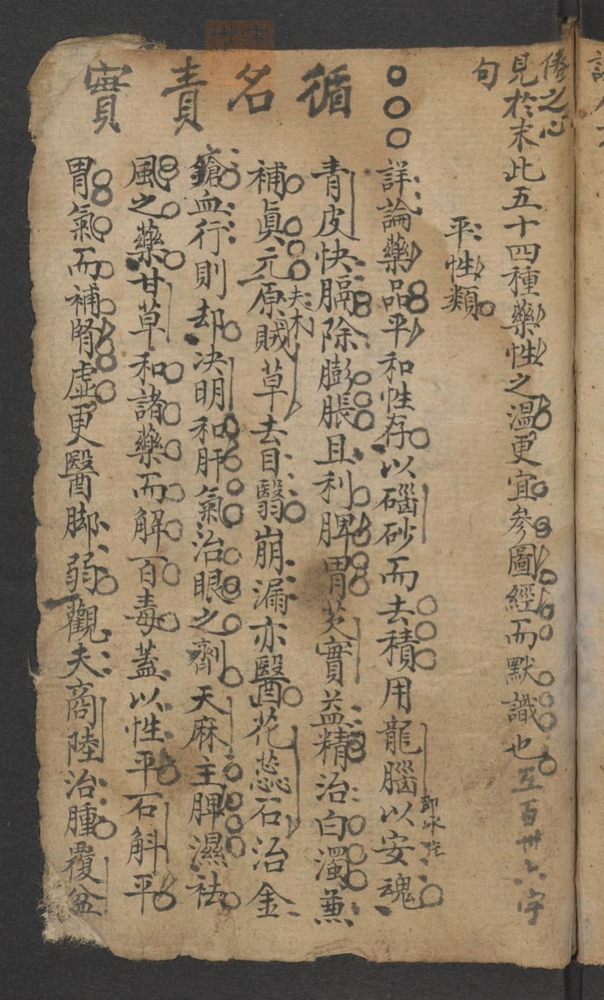 倦之心
句
見於末此五十四種藥性之溫更宜參圖經而默識也五百卅六字
平性類
循名責實
詳論藥品平和性存以硇砂而去積用龍腦以安魂
即冰片
青皮快膈除膨脹且利脾胃芡實益精治白濁兼
補眞元原賊草去目翳崩漏亦醫花蕊石治金
夫木
鎗血行則却决明和肝氣治眼之劑天麻主脾濕祛
風之藥甘草和諸藥而解百毒蓋以性平石斛平
胃氣而補腎虛更醫脚弱觀夫商陸治腫覆盆